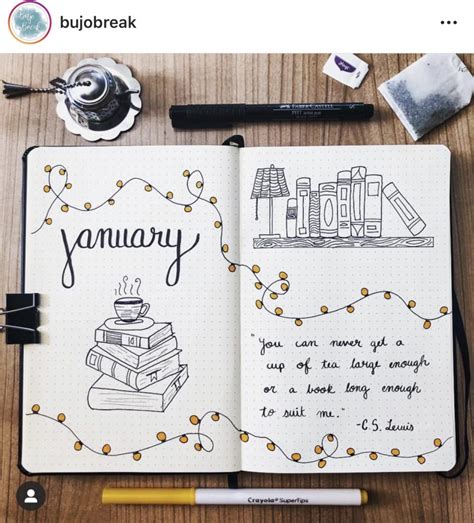 bujobreak
FABER-CASTELL
january
"You can never get a
cup of tea large enough
or a book long enough
to suit me."
-C.S. Lewis
Crayola® SuperTips